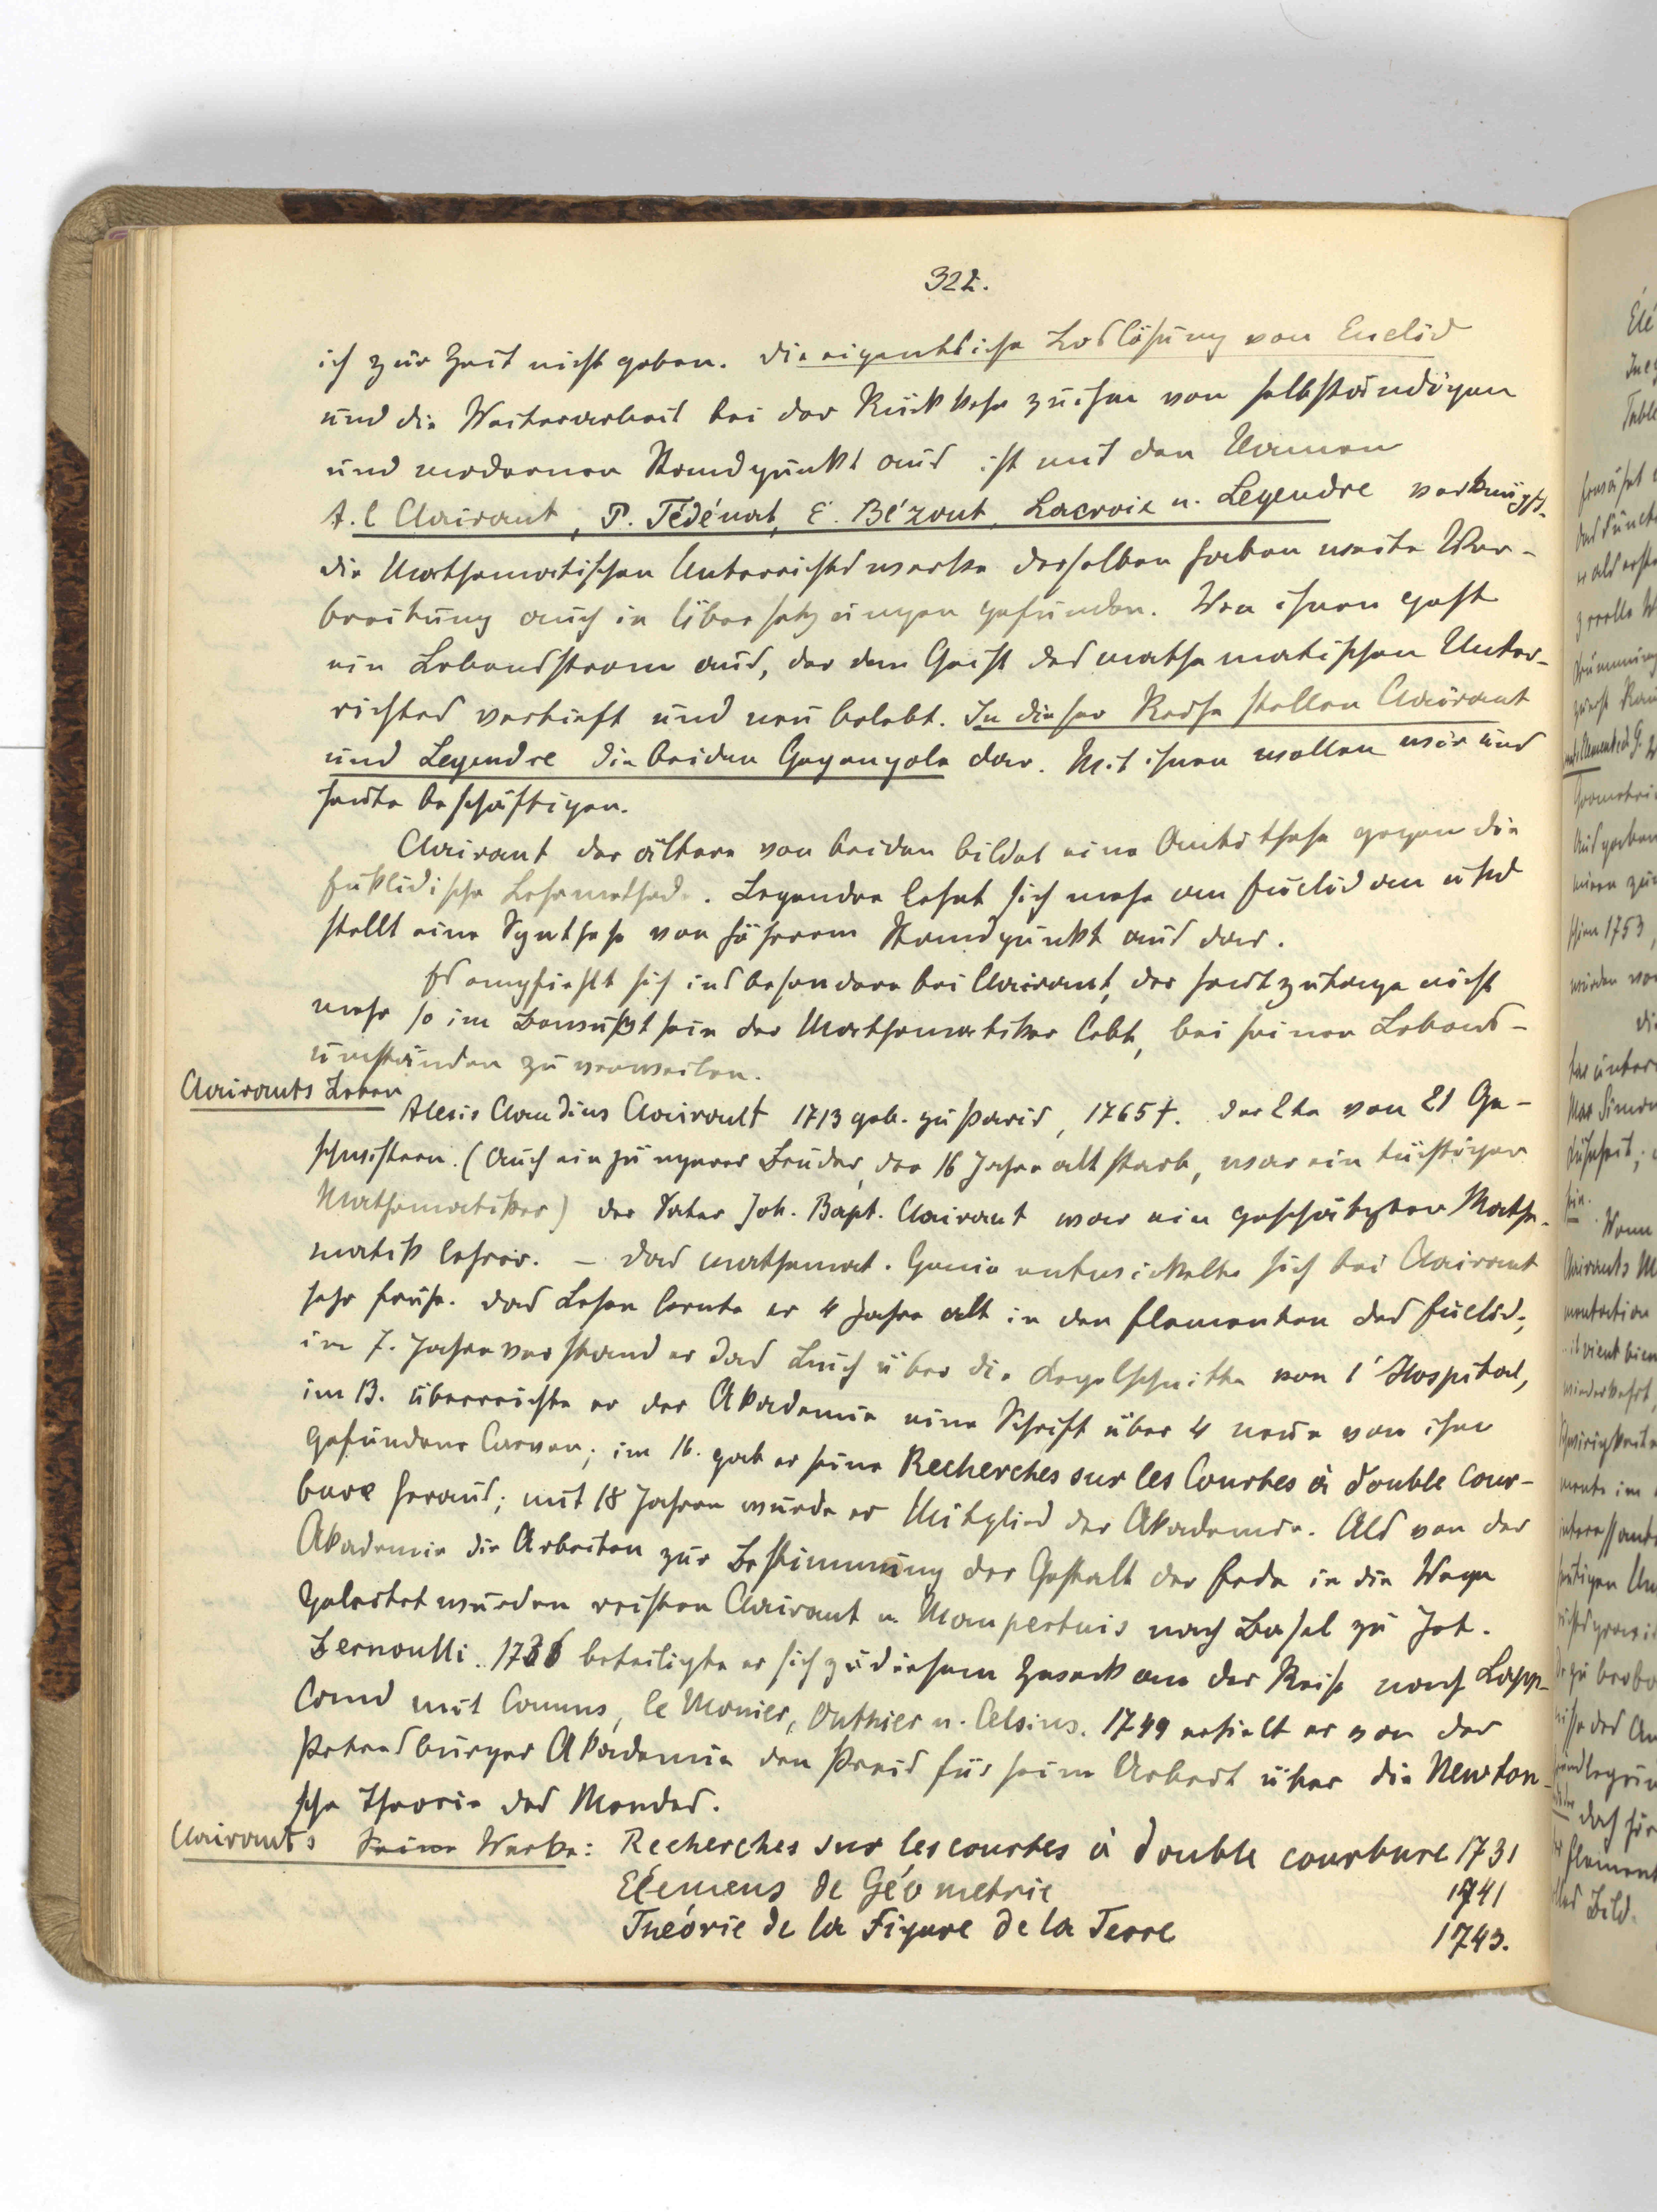 322.
ich zur Zeit nicht geben. Die eigentliche Loslösung von Euclid
und die Weiterarbeit bei der Rückkehr zu ihm von selbständigem
und modernem Standpunkt aus ist mit den Namen
A. C Clairaut, P. Tédénat, E. Bézout, Lacroix u. Legendre verknüpft.
Die Mathematischen Unterrichtswerke derselben haben weite Ver-
breitung auch in Übersetzungen gefunden. Von ihnen geht
ein Lebensstrom aus, der den Geist des mathematischen Unter-
richtes vertieft und neu belebt. In dieser Reihe stellen Clairaut
und Legendre die beiden Gegenpole dar. Mit ihnen wollen wir uns
heute beschäftigen.
Clairaut der ältere von beiden bildet eine Antithese gegen die
Euklidische Lehrmethode. Legendre lehnt sich mehr an Euclid an und
stellt eine Synthese von höherem Standpunkt aus dar.
Es empfiehlt sich insbesondere bei Clairaut, der heutzutage nicht
mehr so im Bewußtsein der Mathematiker lebt, bei seinen Lebens-
umständen zu verweilen.
Clairauts Leben
Alexis Claudius Clairault 1713 geb. zu Paris, 1765 †. Der 2te von 21 Ge-
schwistern. (Auch ein jüngerer Bruder, der 16 Jahre alt starb, war ein tüchtiger
Mathematiker) Der Vater Joh. Bapt. Clairaut war ein geschätzter Mathe-
matiklehrer. – Das mathemat. Genie entwickelte sich bei Clairaut
sehr frühe. Das Lesen lernte er 4 Jahre alt in den Elementen des Euclid;
im 7. Jahre verstand er das Buch über die Kegelschnitte von l'Hospital,
im 13. überreichte er der Akademie eine Schrift über 4 neue von ihm
gefundene Curven; im 16. gab er seine Recherches sur les Courbes à double Cour-
bure heraus; mit 18 Jahren wurde er Mitglied der Akademie. Als von der
Akademie die Arbeiten zur Bestimmung der Gestalt der Erde in die Wege
geleitet wurden reisten Clairaut u. Maupertuis nach Basel zu Joh.
Bernoulli. 1736 beteiligte er sich zu diesem Zweck an der Reise nach Lapp-
land mit Camus, le Monier, Outhier u. Celsius. 1749 erhielt er von der
Petersburger Akademie den Preis für seine Arbeit über die Newton-
sche Theorie des Mondes.
Clairauts Seine Werke: Recherches sur les courbes à double courbure 1731
Elémens de Géometrie 1741
Théorie de la Figure de la Terre 1743.